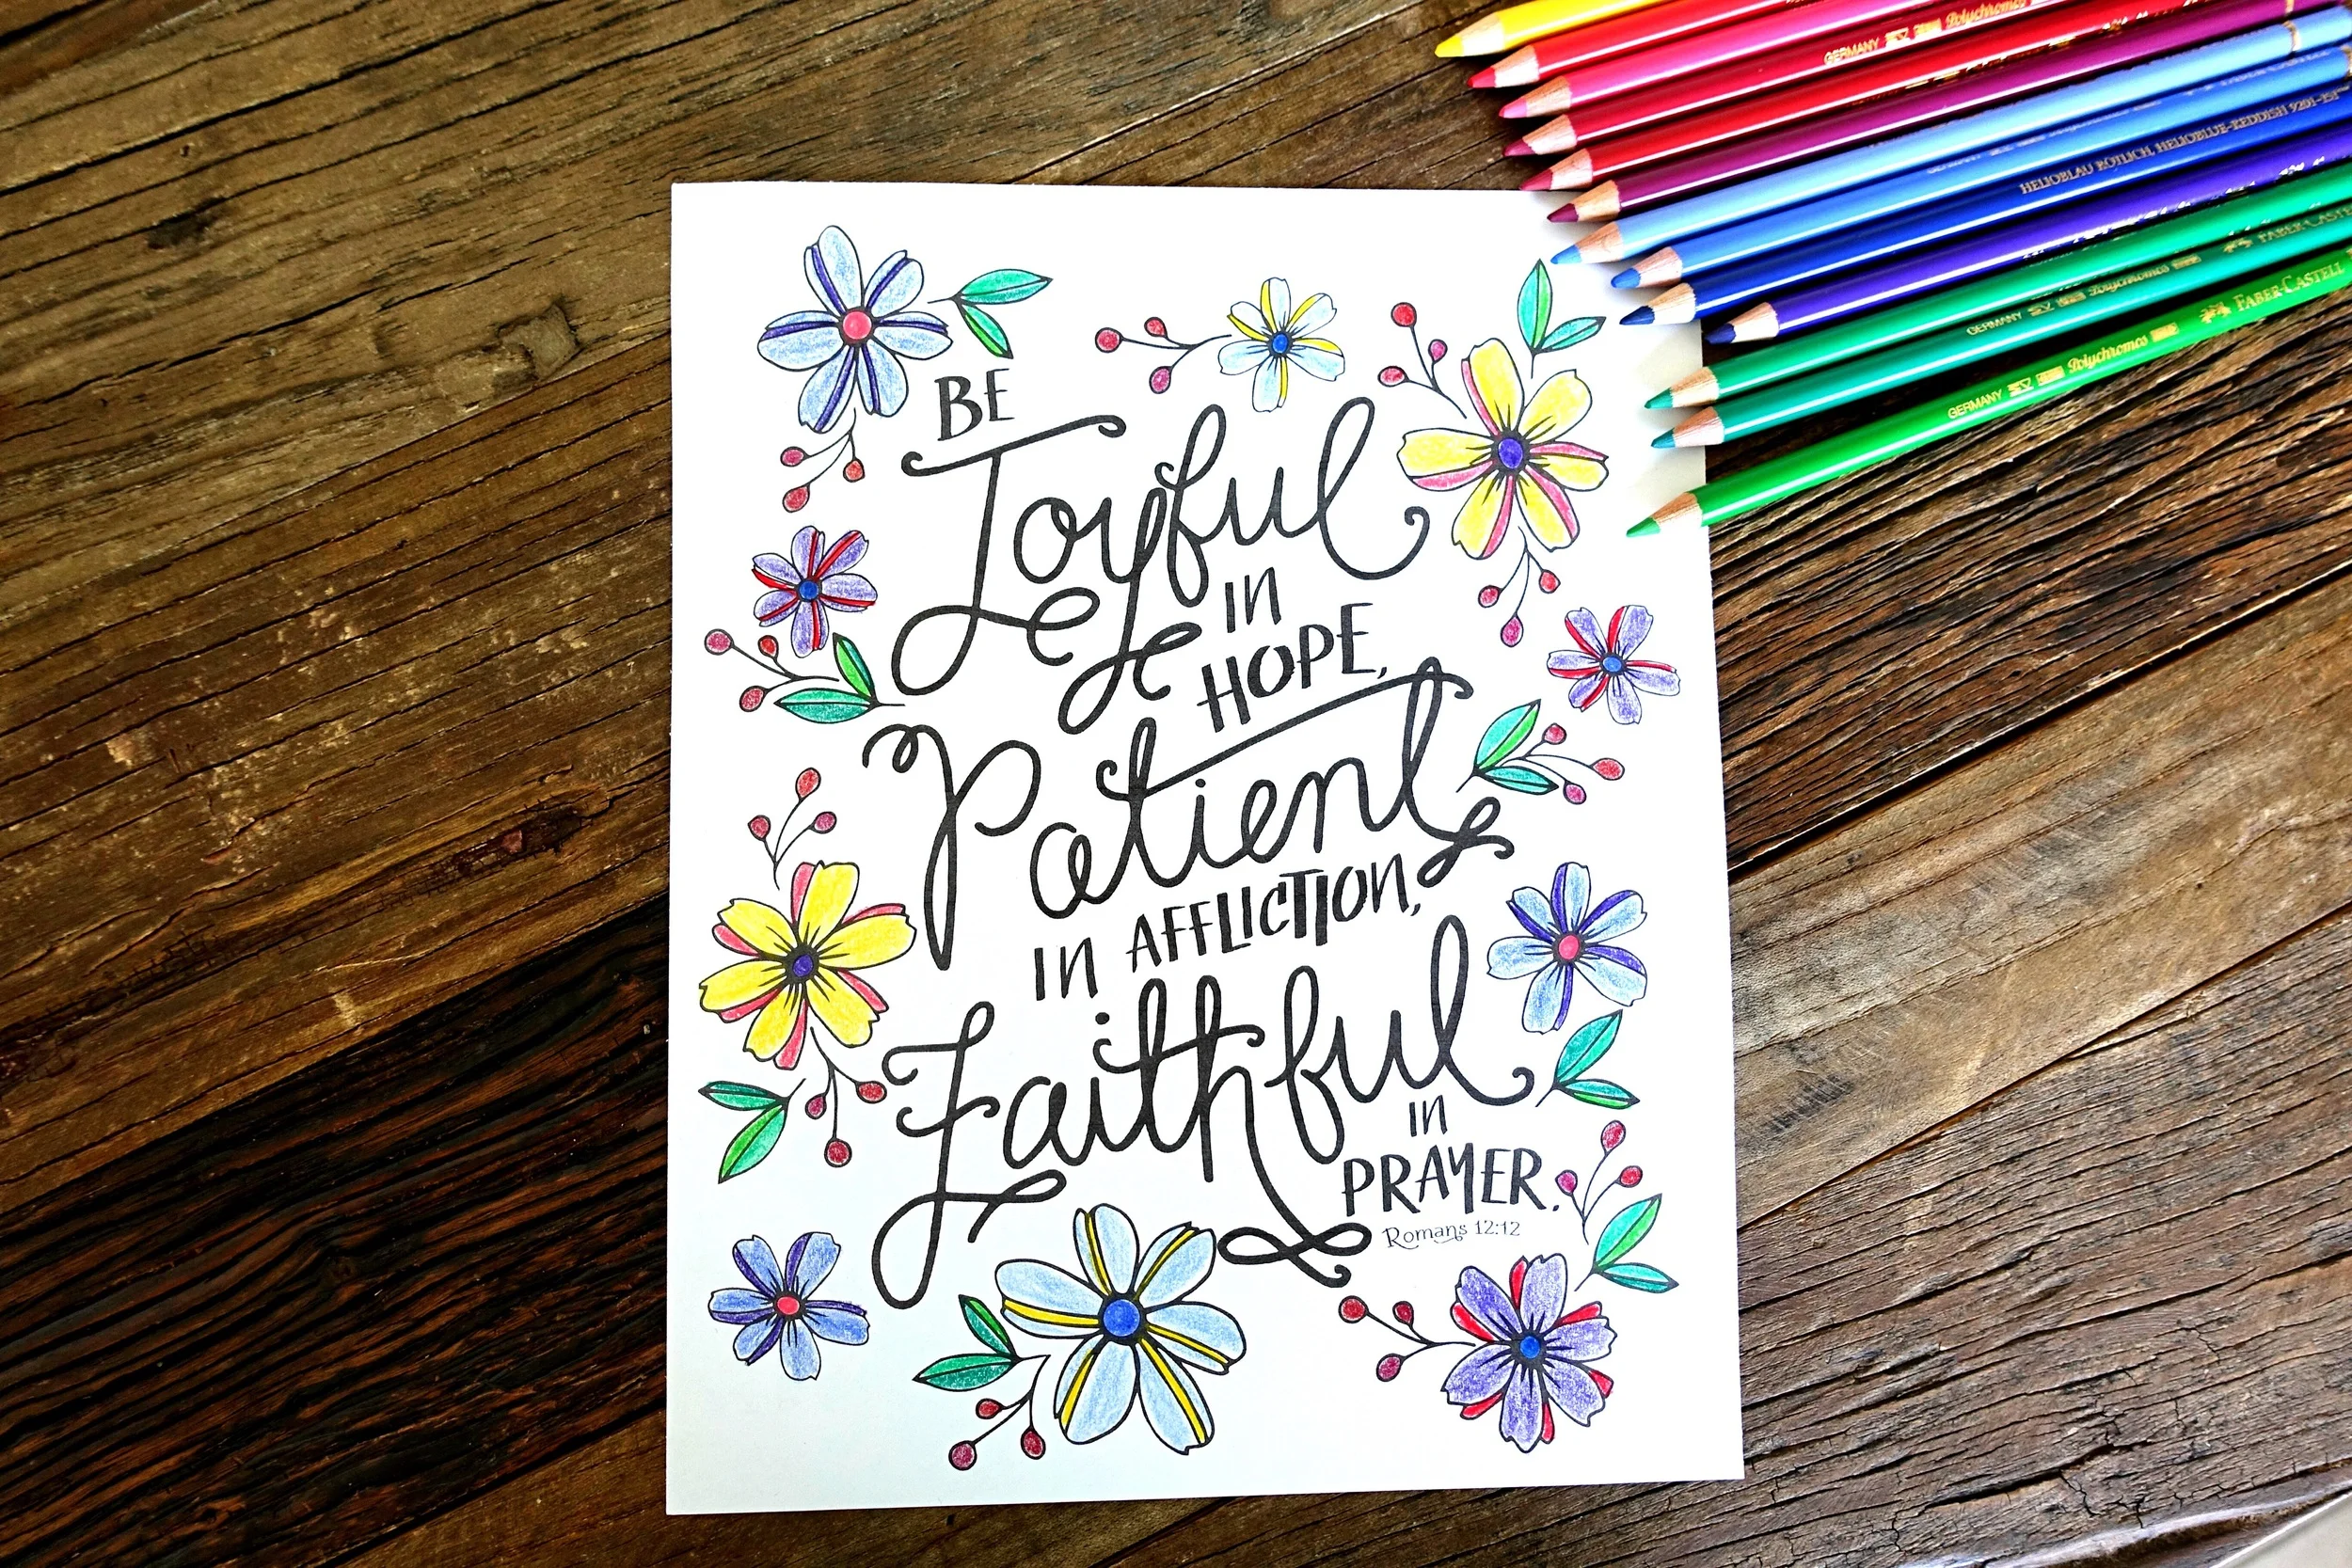 BE
Joyful
IN
HOPE,
Patient
IN AFFLICTION,
Faithful
IN
PRAYER.
Romans 12:12
Polychromos
GERMANY Polychromos
HELIOBLAU RÖTLICH, HELIOBLUE-REDDISH 9201-151
FABER-CASTELL
GERMANY Polychromos
GERMANY Polychromos FABER-CASTELL